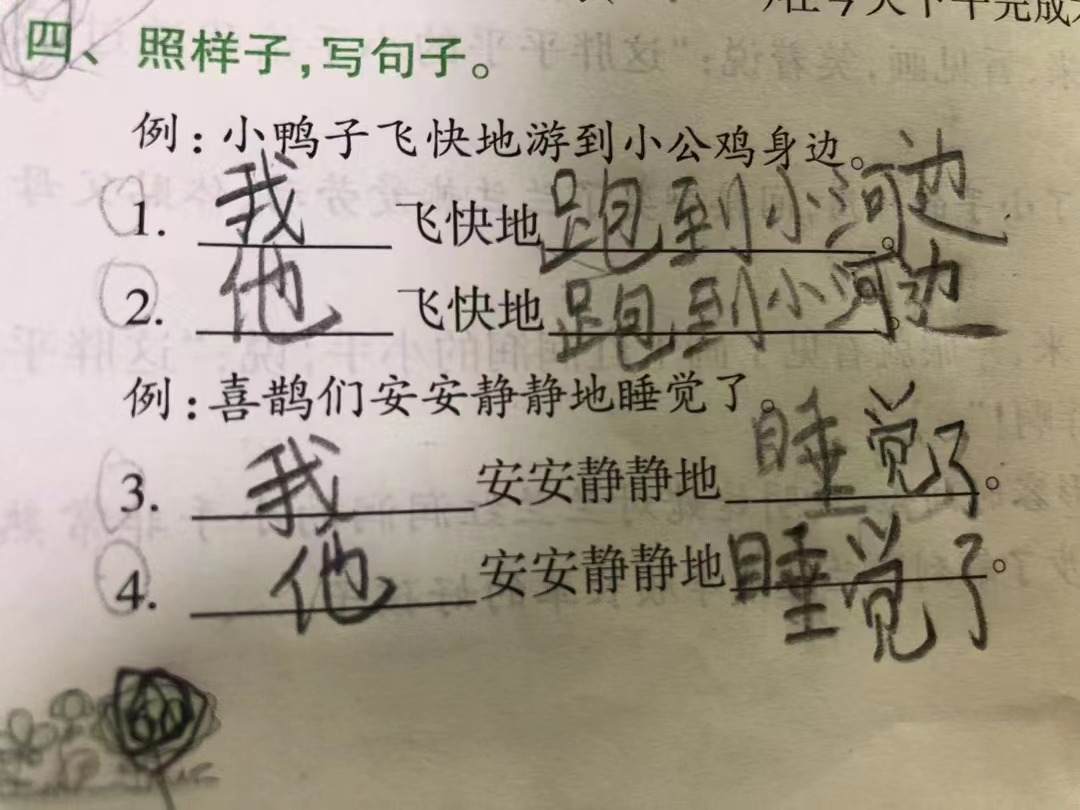 在今天下午完成
四、照样子，写句子。
例：小鸭子飞快地游到小公鸡身边。
1. 我 飞快地跑到小河边。
2. 他 飞快地跑到小河边。
例：喜鹊们安安静静地睡觉了。
3. 我 安安静静地睡觉了。
4. 他 安安静静地睡觉了。
60